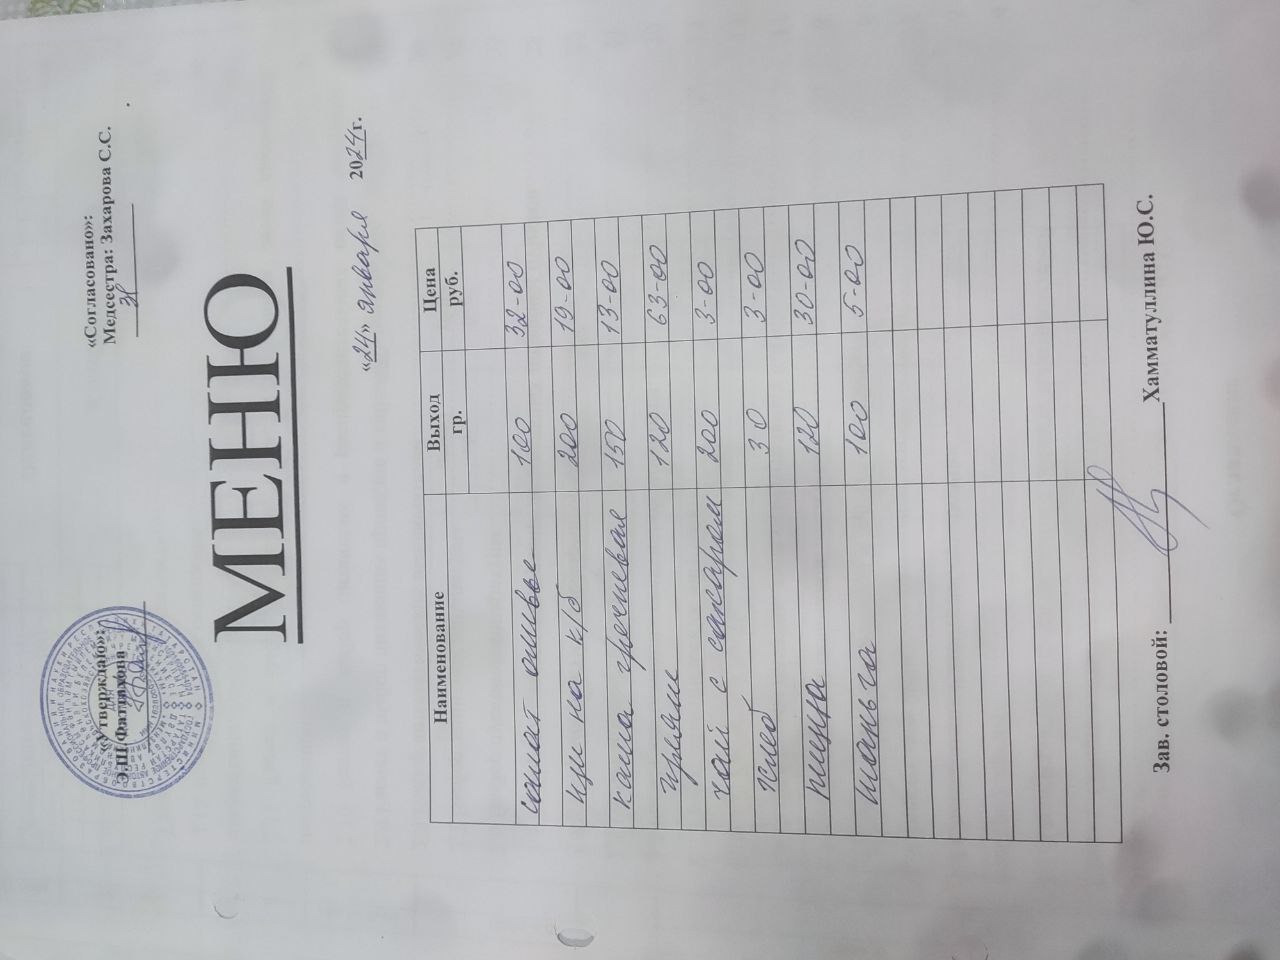 «Утверждаю»:
Э.Ш.Фатихова
«Согласовано»:
Медсестра: Захарова С.С.
МЕНЮ
«24» января 2024г.
Наименование Выход гр. Цена руб.
салат оливье 100 32-00
щи на к/б 200 19-00
каша гречневая 150 13-00
гуляш 120 63-00
чай с сахаром 200 3-00
хлеб 30 3-00
пицца 120 30-00
шаньга 100 5-00
Зав. столовой: Хамматуллина Ю.С.